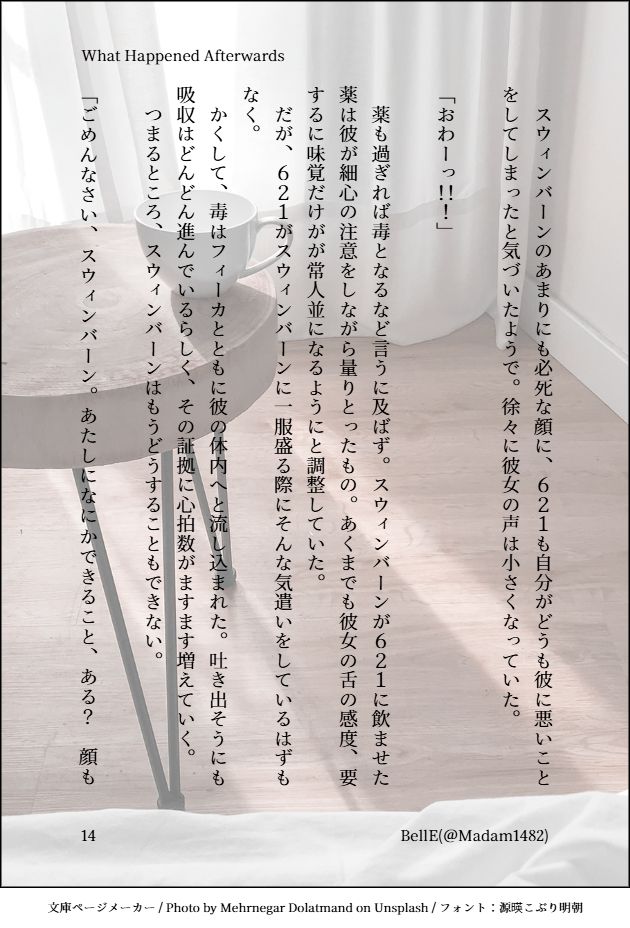 What Happened Afterwards
　スウィンバーンのあまりにも必死な顔に、６２１も自分がどうも彼に悪いこと
をしてしまったと気づいたようで。徐々に彼女の声は小さくなっていた。
「おわーっ!!！」
　薬も過ぎれば毒となるなど言うに及ばず。スウィンバーンが６２１に飲ませた
薬は彼が細心の注意をしながら量りとったもの。あくまでも彼女の舌の感度、要
するに味覚だけがが常人並になるようにと調整していた。
　だが、６２１がスウィンバーンに一服盛る際にそんな気遣いをしているはずも
なく。
　かくして、毒はフィーカとともに彼の体内へと流し込まれた。吐き出そうにも
吸収はどんどん進んでいるらしく、その証拠に心拍数がますます増えていく。
　つまるところ、スウィンバーンはもうどうすることもできない。
「ごめんなさい、スウィンバーン。あたしになにかできること、ある？　顔も
14
BellE(@Madam1482)
文庫ページメーカー / Photo by Mehrnegar Dolatmand on Unsplash / フォント：源暎こぶり明朝